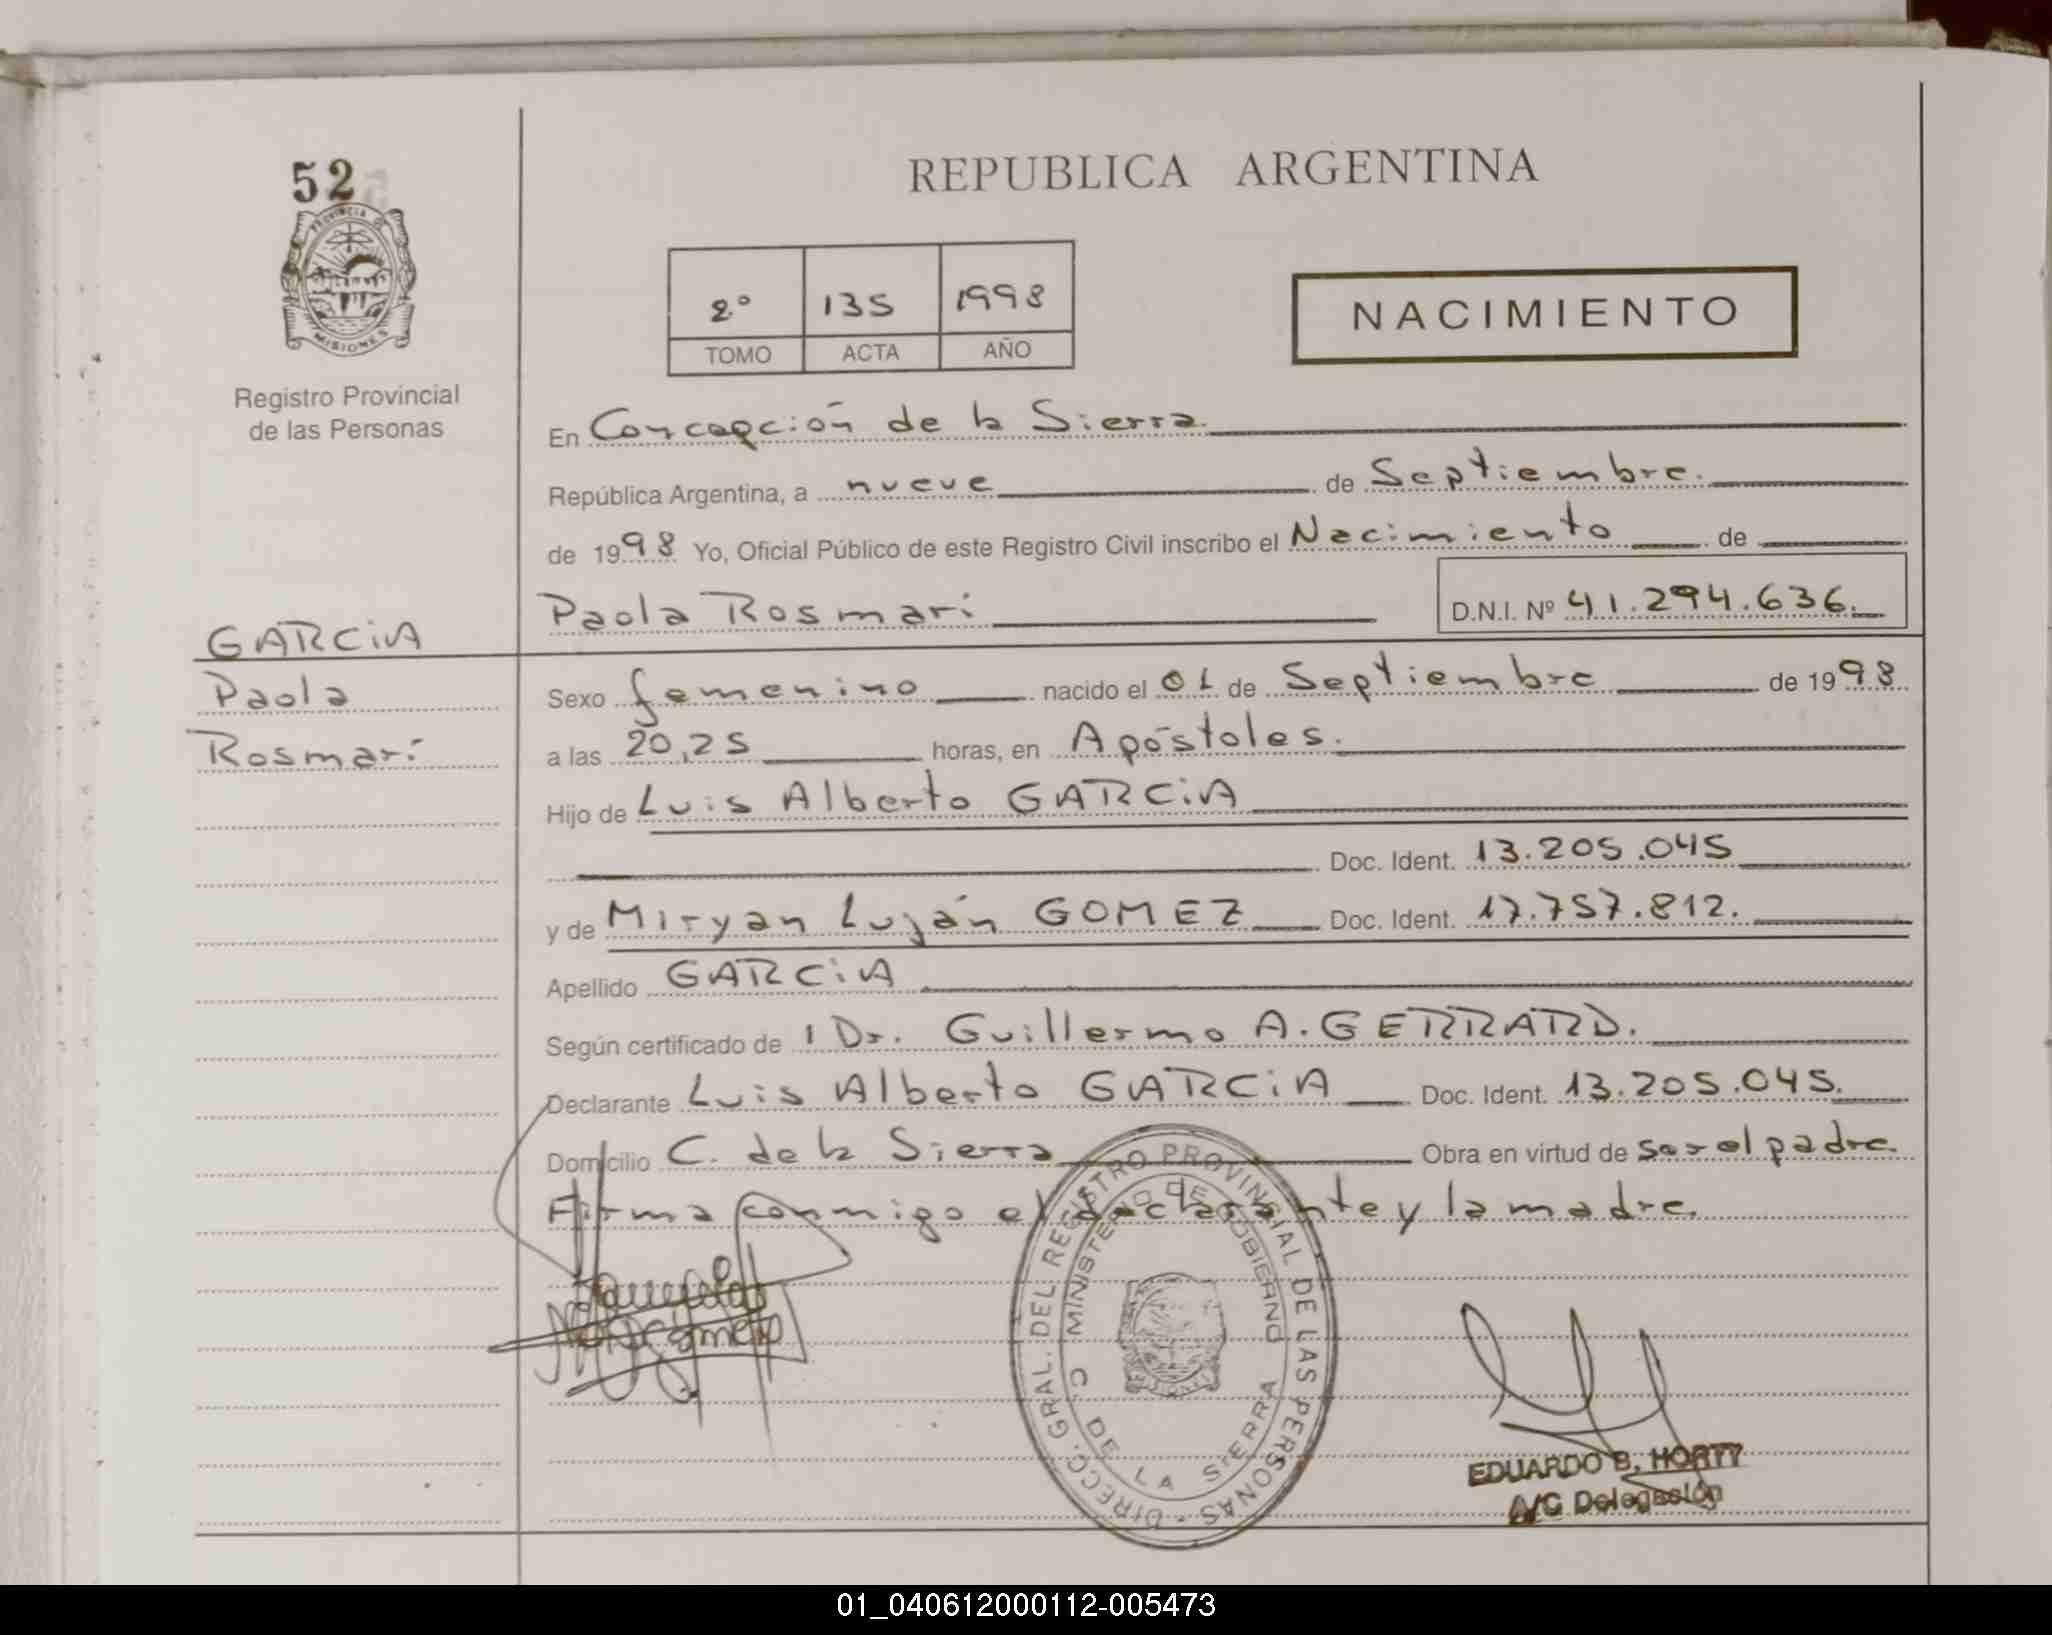 52
PROVINCIA DE
MISIONES
Registro Provincial
de las Personas
REPUBLICA ARGENTINA
2° 135 1998
TOMO ACTA AÑO
NACIMIENTO
En Concepción de la Sierra.
República Argentina, a nueve de Septiembre.
de 1998 Yo, Oficial Público de este Registro Civil inscribo el Nacimiento de
Paola Rosmari D.N.I. Nº 41.294.636.
GARCiA
Paola
Rosmari
Sexo femenino nacido el 01 de Septiembre de 1998
a las 20,25 horas, en Apóstoles.
Hijo de Luis Alberto GARCiA
Doc. Ident. 13.205.045
y de Miryan Luján GOMEZ Doc. Ident. 17.757.812.
Apellido GARCiA
Según certificado de 1 Dr. Guillermo A. GERRARD.
Declarante Luis Alberto GARCiA Doc. Ident. 13.205.045.
Domicilio C. de la Sierra Obra en virtud de ser el padre.
Firma conmigo el declarante y la madre.
DIRECC. GRAL. DEL REGISTRO PROVINCIAL DE LAS PERSONAS
MINISTERIO DE GOBIERNO
C. DE LA SIERRA
EDUARDO B. HORTY
A/C Delegación
01_040612000112-005473